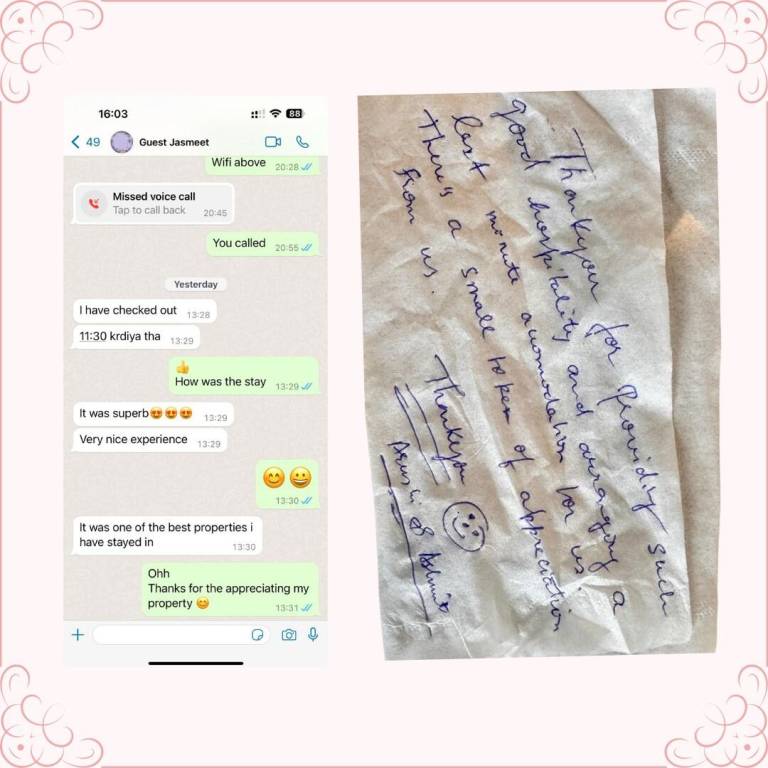 16:03
88
49
Guest Jasmeet
Wifi above 20:28
Missed voice call
Tap to call back 20:45
You called 20:55
Yesterday
I have checked out 13:28
11:30 krdiya tha 13:29
👍
How was the stay 13:29
It was superb😍😍😍 13:29
Very nice experience 13:29
😊 😀
13:30
It was one of the best properties i
have stayed in 13:30
Ohh
Thanks for the appreciating my
property 😊 13:31
Thankyou for providing such
good hospitality and arranging a
last minute accomodation for us.
There's a small token of appreciation
from us.
Thankyou